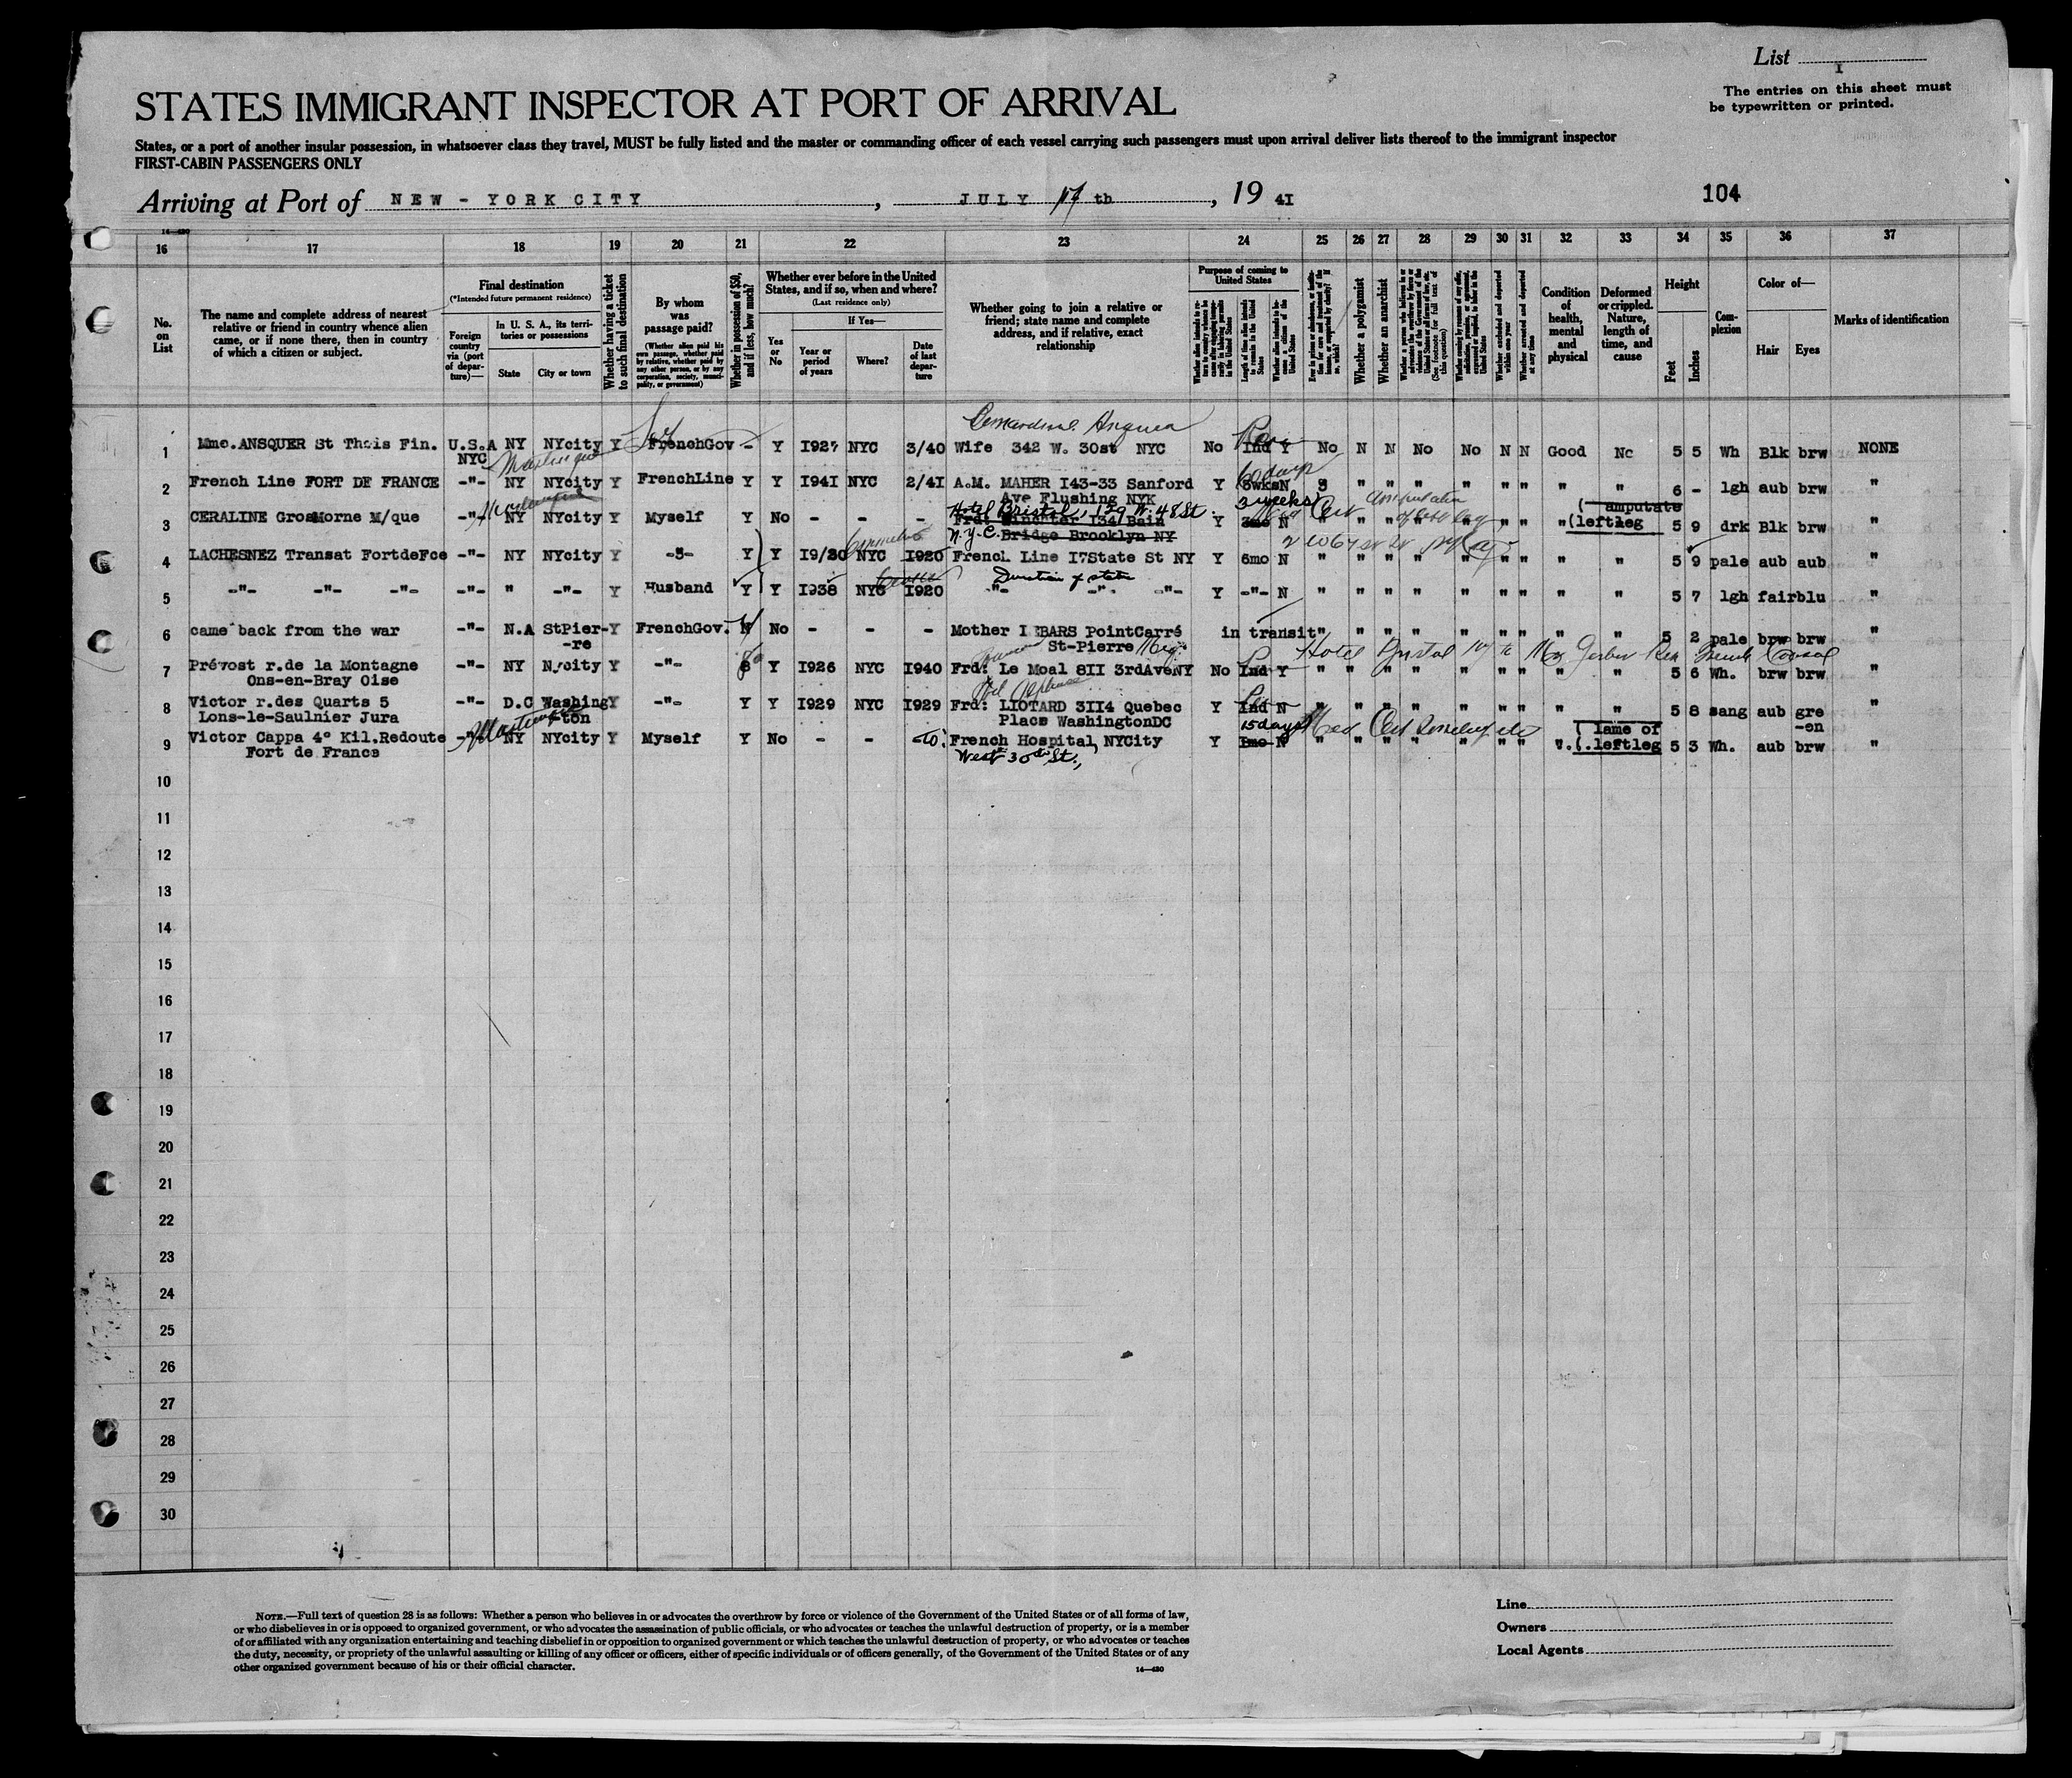 List
I
The entries on this sheet must
be typewritten or printed.
STATES IMMIGRANT INSPECTOR AT PORT OF ARRIVAL
States, or a port of another insular possession, in whatsoever class they travel, MUST be fully listed and the master or commanding officer of each vessel carrying such passengers must upon arrival deliver lists thereof to the immigrant inspector
FIRST-CABIN PASSENGERS ONLY
Arriving at Port of NEW - YORK CITY, JULY th, 19 4I
104
14—430
16 17 18 19 20 21 22 23 24 25 26 27 28 29 30 31 32 33 34 35 36 37
No. on List
The name and complete address of nearest relative or friend in country whence alien came, or if none there, then in country of which a citizen or subject.
Final destination
(*Intended future permanent residence)
Foreign country via (port of departure)—
In U. S. A., its territories or possessions
State
City or town
Whether having a ticket to such final destination
By whom was passage paid?
(Whether alien paid his own passage, whether paid by relative, whether paid by any other person, or by any corporation, society, municipality, or government)
Whether in possession of $50, and if less, how much?
Whether ever before in the United States, and if so, when and where?
(Last residence only)
Yes or No
If Yes—
Year or period of years
Where?
Date of last departure
Whether going to join a relative or friend; state name and complete address, and if relative, exact relationship
Purpose of coming to United States
Length of time alien intends to remain in the United States
Whether a polygamist
Whether an anarchist
(See footnote for full text of this question)
Whether arrested and deported at any time
Condition of health, mental and physical
Deformed or crippled. Nature, length of time, and cause
Height
Feet
Inches
Complexion
Color of—
Hair
Eyes
Marks of identification
1 Mme.ANSQUER St Thais Fin. U.S.A NY NYcity Y FrenchGov - Y I927 NYC 3/40 Wife 342 W. 30st NYC No Ind Y No N N No No N N Good No 5 5 Wh Blk brw NONE
NYC Martinique
2 French Line FORT DE FRANCE -"- NY NYcity Y FrenchLine Y Y I94I NYC 2/4I A.M. MAHER I43-33 Sanford Y 8wks N " " " " " " " " 6 - lgh aub brw "
60 days
Ave Flushing NYK
3 weeks
Hotel Bristol, 129 W. 48 St.
3 CERALINE GrosMorne M/que -"- NY NYcity Y Myself Y No - - - Y 3mo N " " " " " " " (leftleg 5 9 drk Blk brw "
amputate
N.Y.C. Bridge Brooklyn NY
4 LACHESNEZ Transat FortdeFce -"- NY NYcity Y -"- Y Y I9/20 NYC I920 French Line I7State St NY Y 6mo N " " " " " " " " " 5 9 pale aub aub "
Duration of status
5 -"- -"- -"- -"- " -"- Y Husband Y Y I938 NYC I920 -"- -"- -"- Y -"- N " " " " " " " " " 5 7 lgh fair blu "
6 came back from the war -"- N.A StPier- Y FrenchGov. N No - - - Mother LEBARS PointCarré in transit " " " " " " " " " 5 2 pale brw brw "
-re St-Pierre
7 Prévost r.de la Montagne -"- NY N.ycity Y -"- Y I926 NYC I940 Frd: Le Moal 8II 3rdAveNY No Ind Y " " " " " " " " " 5 6 Wh. brw brw "
Ons-en-Bray Oise
Hotel Bristol
8 Victor r.des Quarts 5 -"- D.C Washing Y -"- Y Y I929 NYC I929 Frd: LIOTARD 3II4 Quebec Y Ind N " " " " " " " " " 5 8 sang aub gre "
Lons-le-Saulnier Jura -ton Place WashingtonDC -en
Martinique 15 days Med Cert
9 Victor Cappa 4° Kil.Redoute -"- NY NYcity Y Myself Y No - - - To: French Hospital, NYCity Y 3mo N " " " " " " " (lame of leftleg 5 3 Wh. aub brw "
Fort de France West 30th St.,
10
11
12
13
14
15
16
17
18
19
20
21
22
23
24
25
26
27
28
29
30
NOTE.—Full text of question 28 is as follows: Whether a person who believes in or advocates the overthrow by force or violence of the Government of the United States or of all forms of law,
or who disbelieves in or is opposed to organized government, or who advocates the assassination of public officials, or who advocates or teaches the unlawful destruction of property, or is a member
of or affiliated with any organization entertaining and teaching disbelief in or opposition to organized government or which teaches the unlawful destruction of property, or who advocates or teaches
the duty, necessity, or propriety of the unlawful assaulting or killing of any officer or officers, either of specific individuals or of officers generally, of the Government of the United States or of any
other organized government because of his or their official character.
14—430
Line
Owners
Local Agents